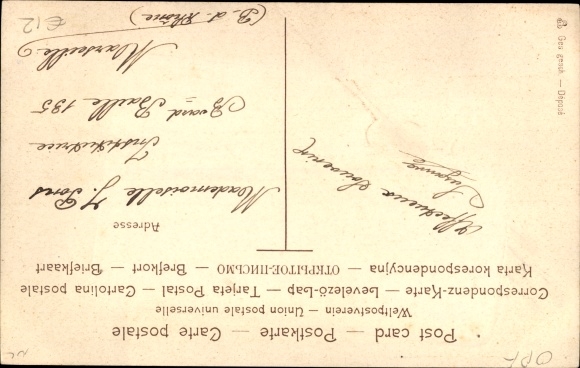 Post card — Postkarte — Carte postale
Weltpostverein — Union postale universelle
Correspondenz-Karte — Levelező-Lap — Tarjeta Postal — Cartolina postale
Karta korespondencyjna — ОТКРЫТОЕ-ПИСЬМО — Brefkort — Briefkaart
Adresse
Affectueux Souvenir
Suzanne
Mademoiselle J. Pons
Institutrice
Bvard Baille 135
Marseille
(B. d. Rhône)
Ges. gesch. — Déposé
€12
OPF